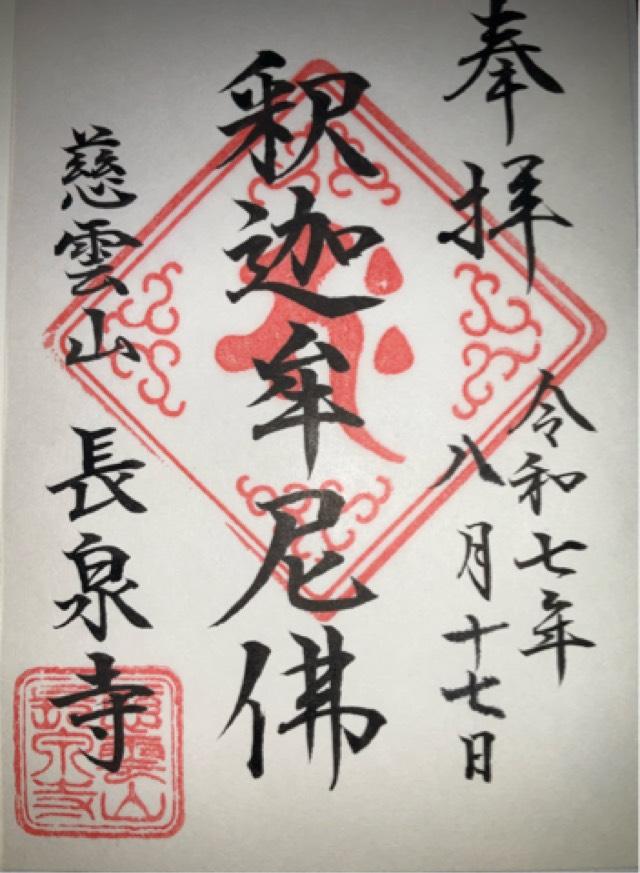 奉拝
令和七年
八月十七日
釈迦牟尼佛
慈雲山 長泉寺
慈雲山
長泉寺